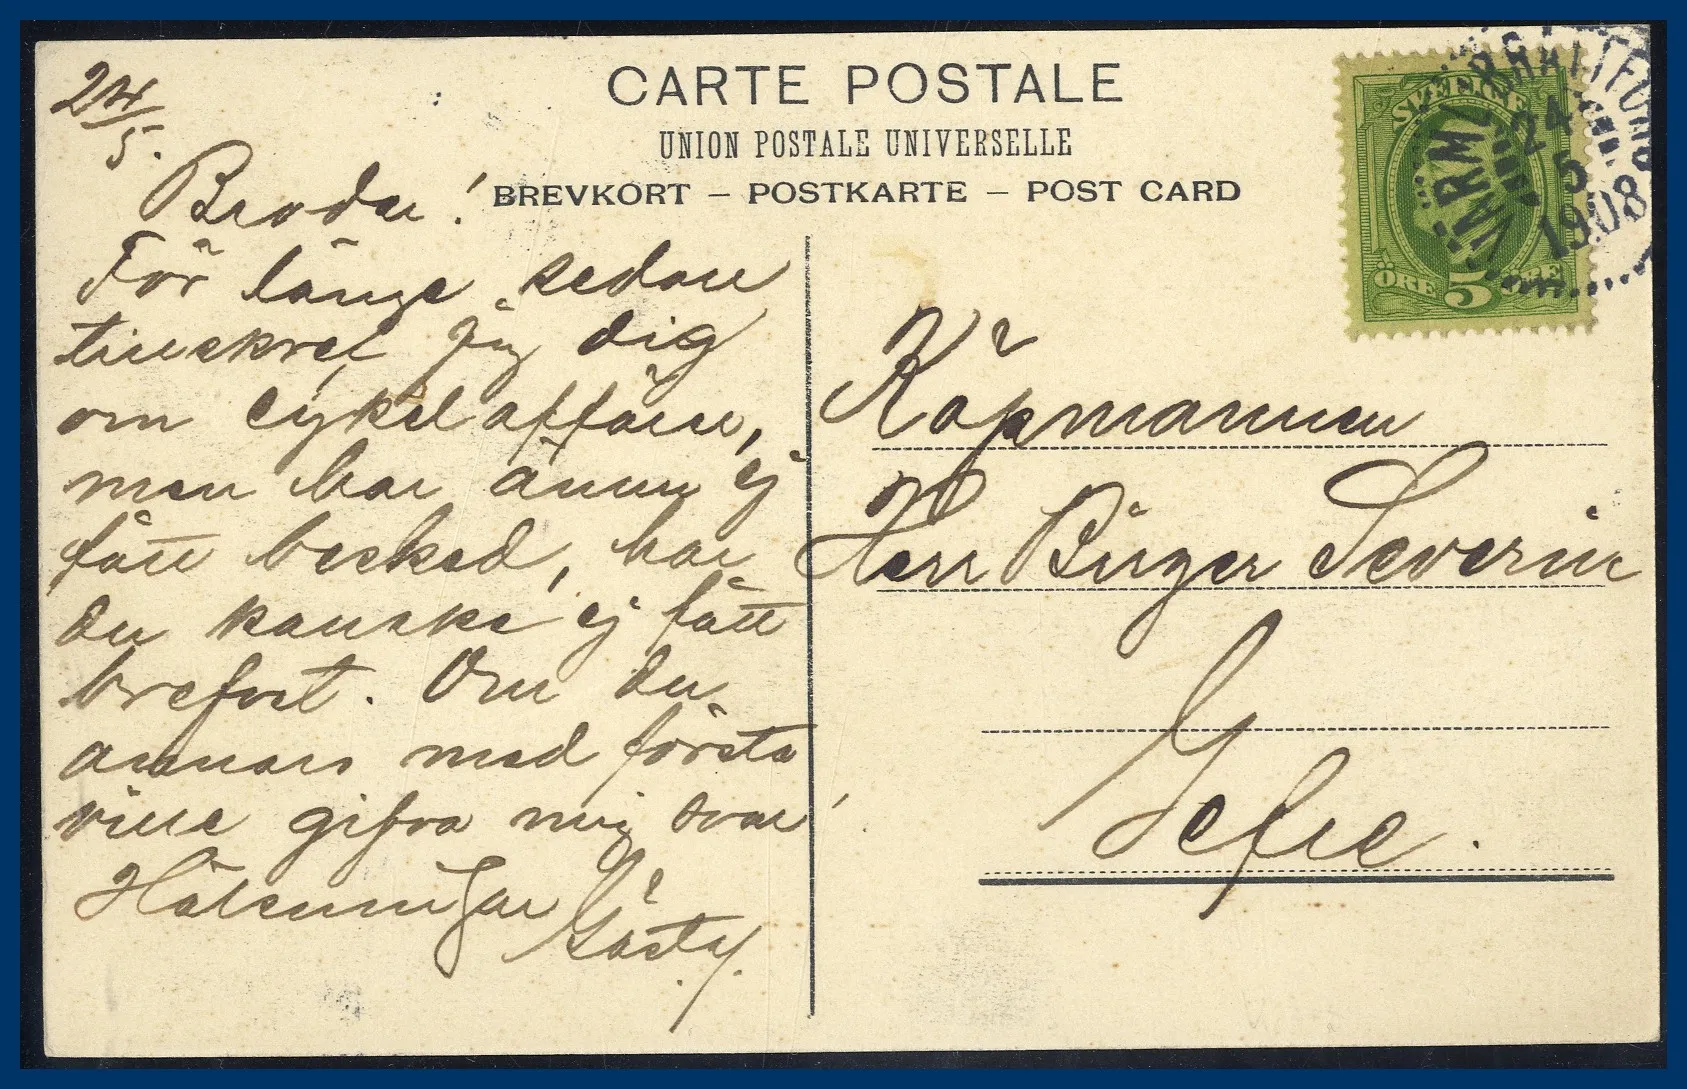 CARTE POSTALE
UNION POSTALE UNIVERSELLE
BREVKORT – POSTKARTE – POST CARD
24/5.
Broder!
För länge sedan
tillskref jag dig
om cykelaffären,
men har ännu ej
fått besked, har
du kanske ej fått
brefvet. Om du
annars med första
ville gifva mig svar
Helsningar
Gösta.
Köpmannen
Herr Birger Severin
Gefle.
SVERIGE
ÖRE 5 ÖRE
VÄRML.
24
5
1908